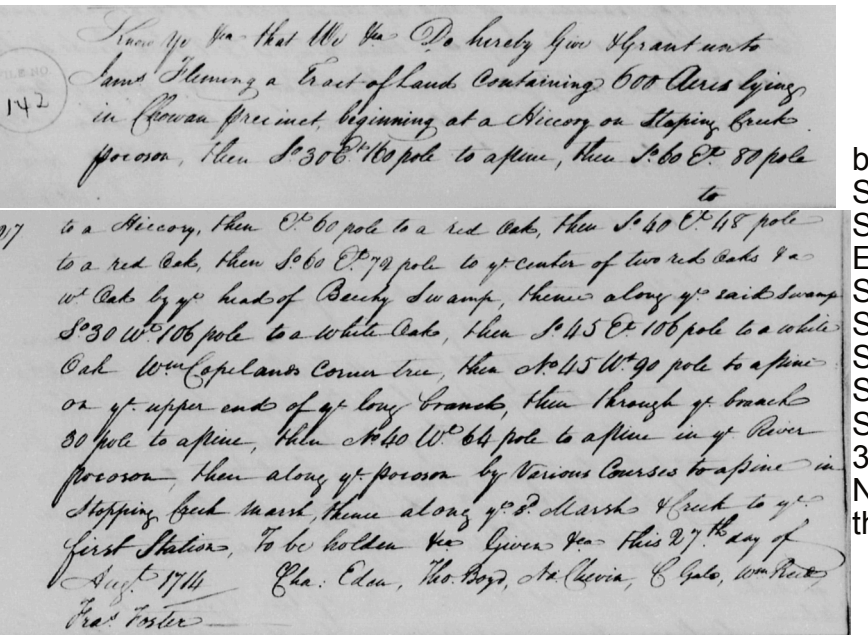 Know ye &ca that We &ca Do hereby Give & Grant unto
Jams Fleming a Tract of Land Containing 600 Acres lying
142
in Chowan Precinct, beginning at a Hiccory on Staping Creek
pocoson, then So 30 Et 160 pole to a pine, then So 60 Et 80 pole
to
to a Hiccory, then Et 60 pole to a red Oak, then So 40 Et 48 pole
to a red Oak, then So 60 Et 72 pole to ye center of two red Oaks & a
wt Oak by ye head of Beechy Swamp, thence along ye said Swamp
So 30 Wt 106 pole to a white Oak, then So 45 Et 106 pole to a white
Oak Wm Copelands Corner tree, then No 45 Wt 90 pole to a pine
on ye upper end of ye long branch, then through ye branch
30 pole to a pine, then No 40 Wt 64 pole to a pine in ye River
pocoson, then along ye pocoson by Various Courses to a pine in
Stopping Creek marsh, thence along ye sd Marsh & Creek to ye
first Station, To be holden &ca Given &ca this 27th day of
Augt 1714 Cha: Eden, Tho. Boyd, Na Chevin, C Gale, Wm Reed,
Fras Foster
b
S
S
E
S
S
S
S
S
3
N
th